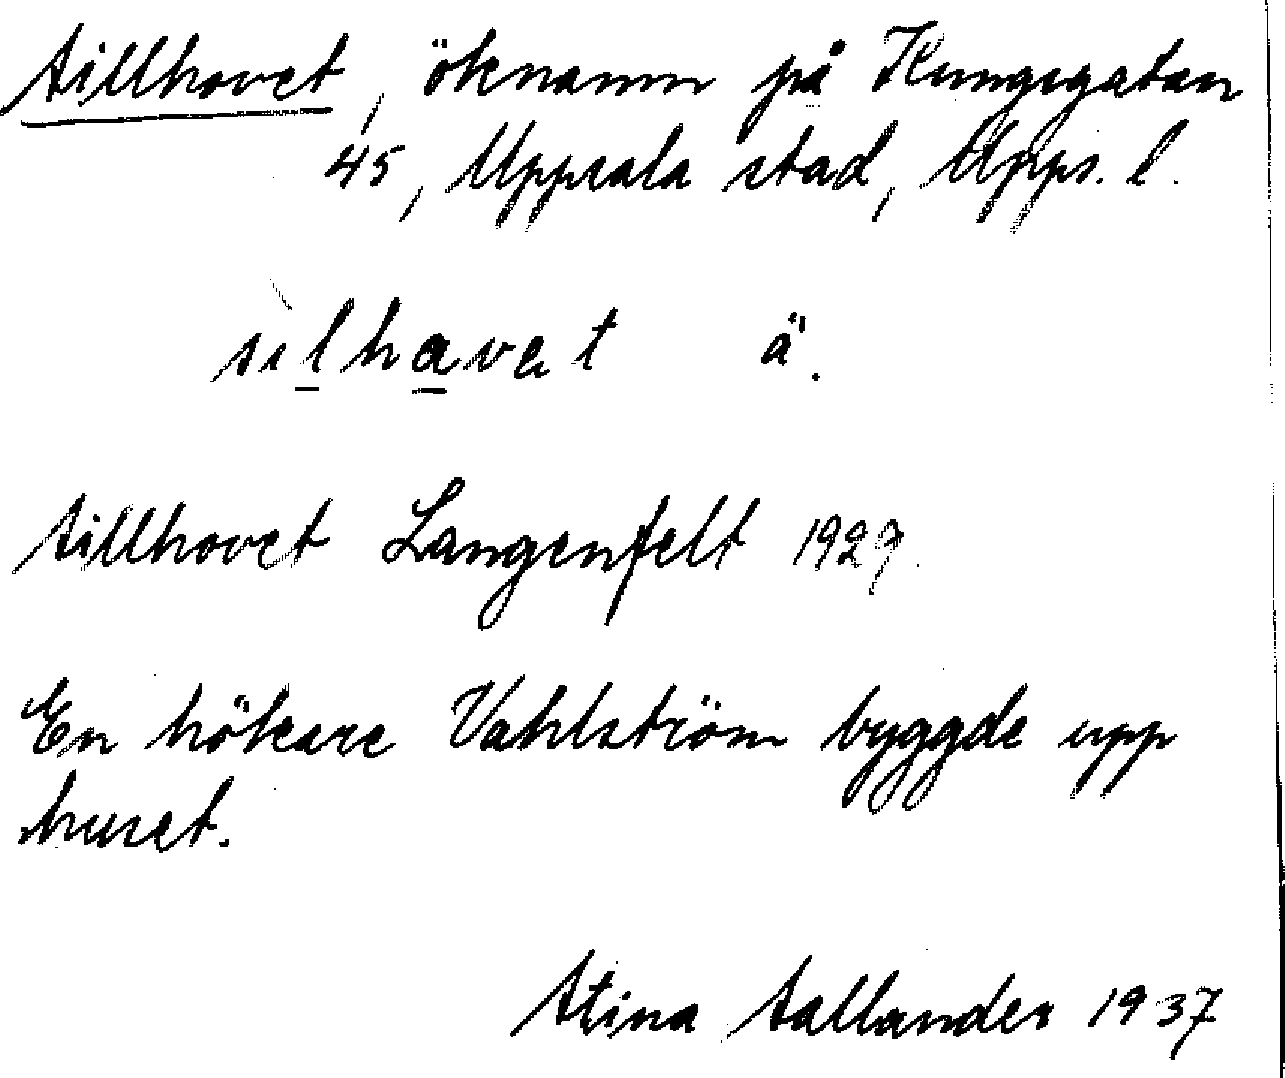 Sillhovet, öknamn på Kungsgatan
45, Uppsala stad, Upps. l.
sìlhavət ä.
Sillhovet Langenfelt 1929.
En hökare Vahlström byggde upp
huset.
Stina Sallander 1937